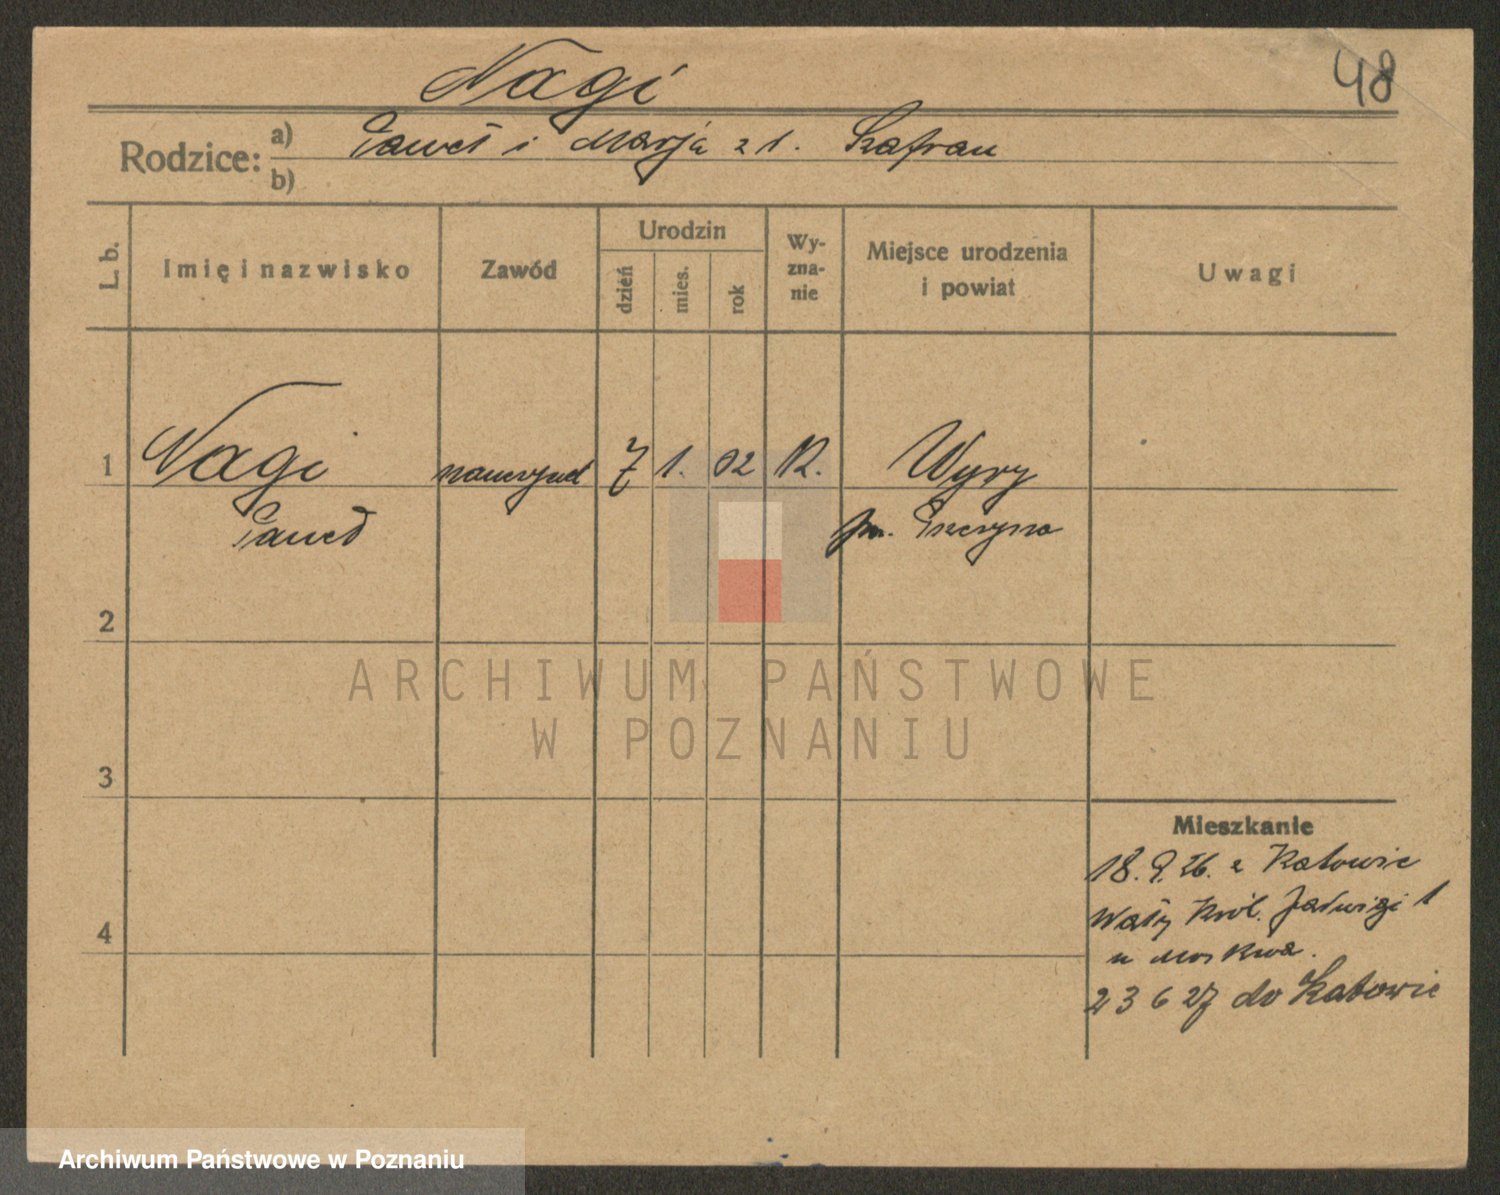 Nagi
48
Rodzice: a) Paweł i Marja z d. Szafran
b)
L. b.
Imię i nazwisko
Zawód
Urodzin
dzień
mies.
rok
Wy-
zna-
nie
Miejsce urodzenia
i powiat
Uwagi
1 Nagi nauczyciel 7 1. 02 K. Wyry
Paweł pow. Pszczyna
2
3
4
Mieszkanie
18. 9. 26. z Katowic
Wały Król. Jadwigi 1
u
23 6 27 do Katowic
ARCHIWUM PAŃSTWOWE
W POZNANIU
Archiwum Państwowe w Poznaniu